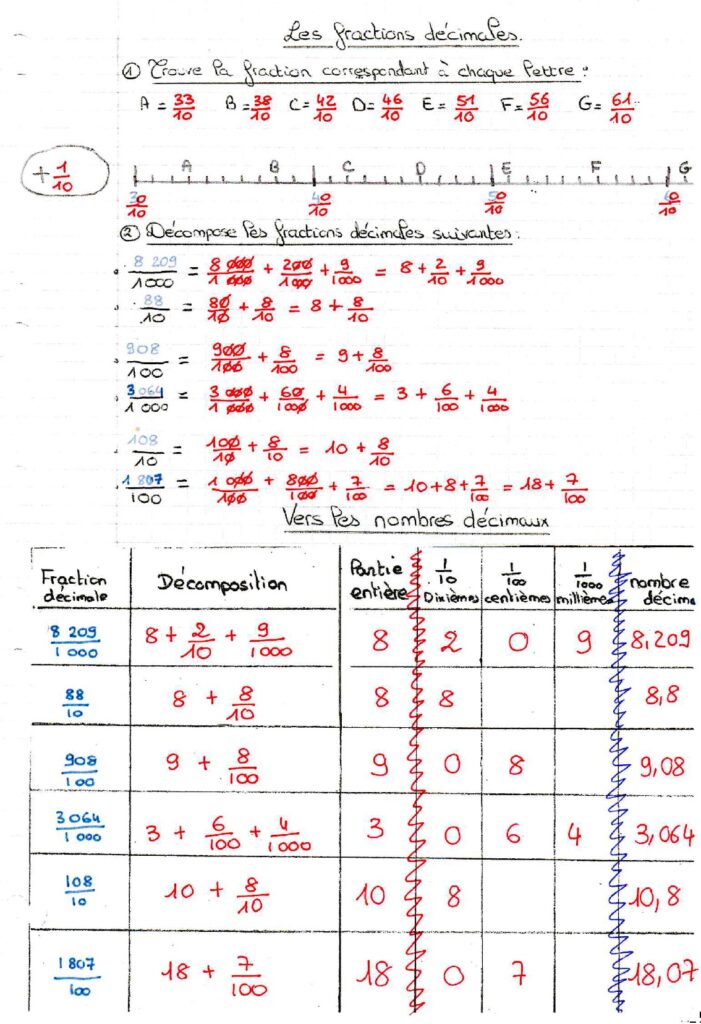 Les fractions décimales.
① Trouve la fraction correspondant à chaque lettre :
A = 33/10 B = 38/10 C = 42/10 D = 46/10 E = 51/10 F = 56/10 G = 61/10
+ 1/10
A B C D E F G
30/10 40/10 50/10 60/10
② Décompose les fractions décimales suivantes :
8 209/1000 = 8 000/1 000 + 200/1000 + 9/1000 = 8 + 2/10 + 9/1000
88/10 = 80/10 + 8/10 = 8 + 8/10
908/100 = 900/100 + 8/100 = 9 + 8/10
3 064/1 000 = 3 000/1 000 + 60/1000 + 4/1000 = 3 + 6/100 + 4/1000
108/10 = 100/10 + 8/10 = 10 + 8/10
1 807/100 = 1 000/100 + 800/100 + 7/100 = 10 + 8 + 7/100 = 18 + 7/100
Vers les nombres décimaux
Fraction décimale Décomposition Partie entière 1/10 Dixièmes 1/100 centièmes 1/1000 millièmes nombre décima
8 209/1 000 8 + 2/10 + 9/1000 8 2 0 9 8,209
88/10 8 + 8/10 8 8 8,8
908/100 9 + 8/100 9 0 8 9,08
3 064/1 000 3 + 6/100 + 4/1000 3 0 6 4 3,064
108/10 10 + 8/10 10 8 10,8
1 807/100 18 + 7/100 18 0 7 18,07